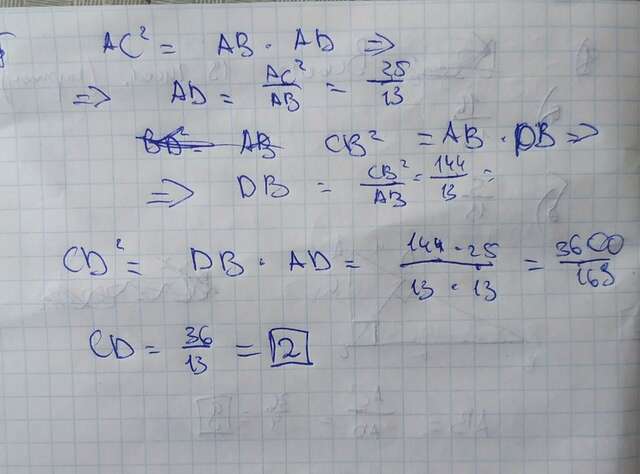 AC² = AB · AD ⇒
⇒ AD = AC²/AB = 25/13
CB² = AB · DB ⇒
⇒ DB = CB²/AB = 144/13 =
CD² = DB · AD = 144 · 25 / 13 · 13 = 3600/169
CD = 36/13 = 2